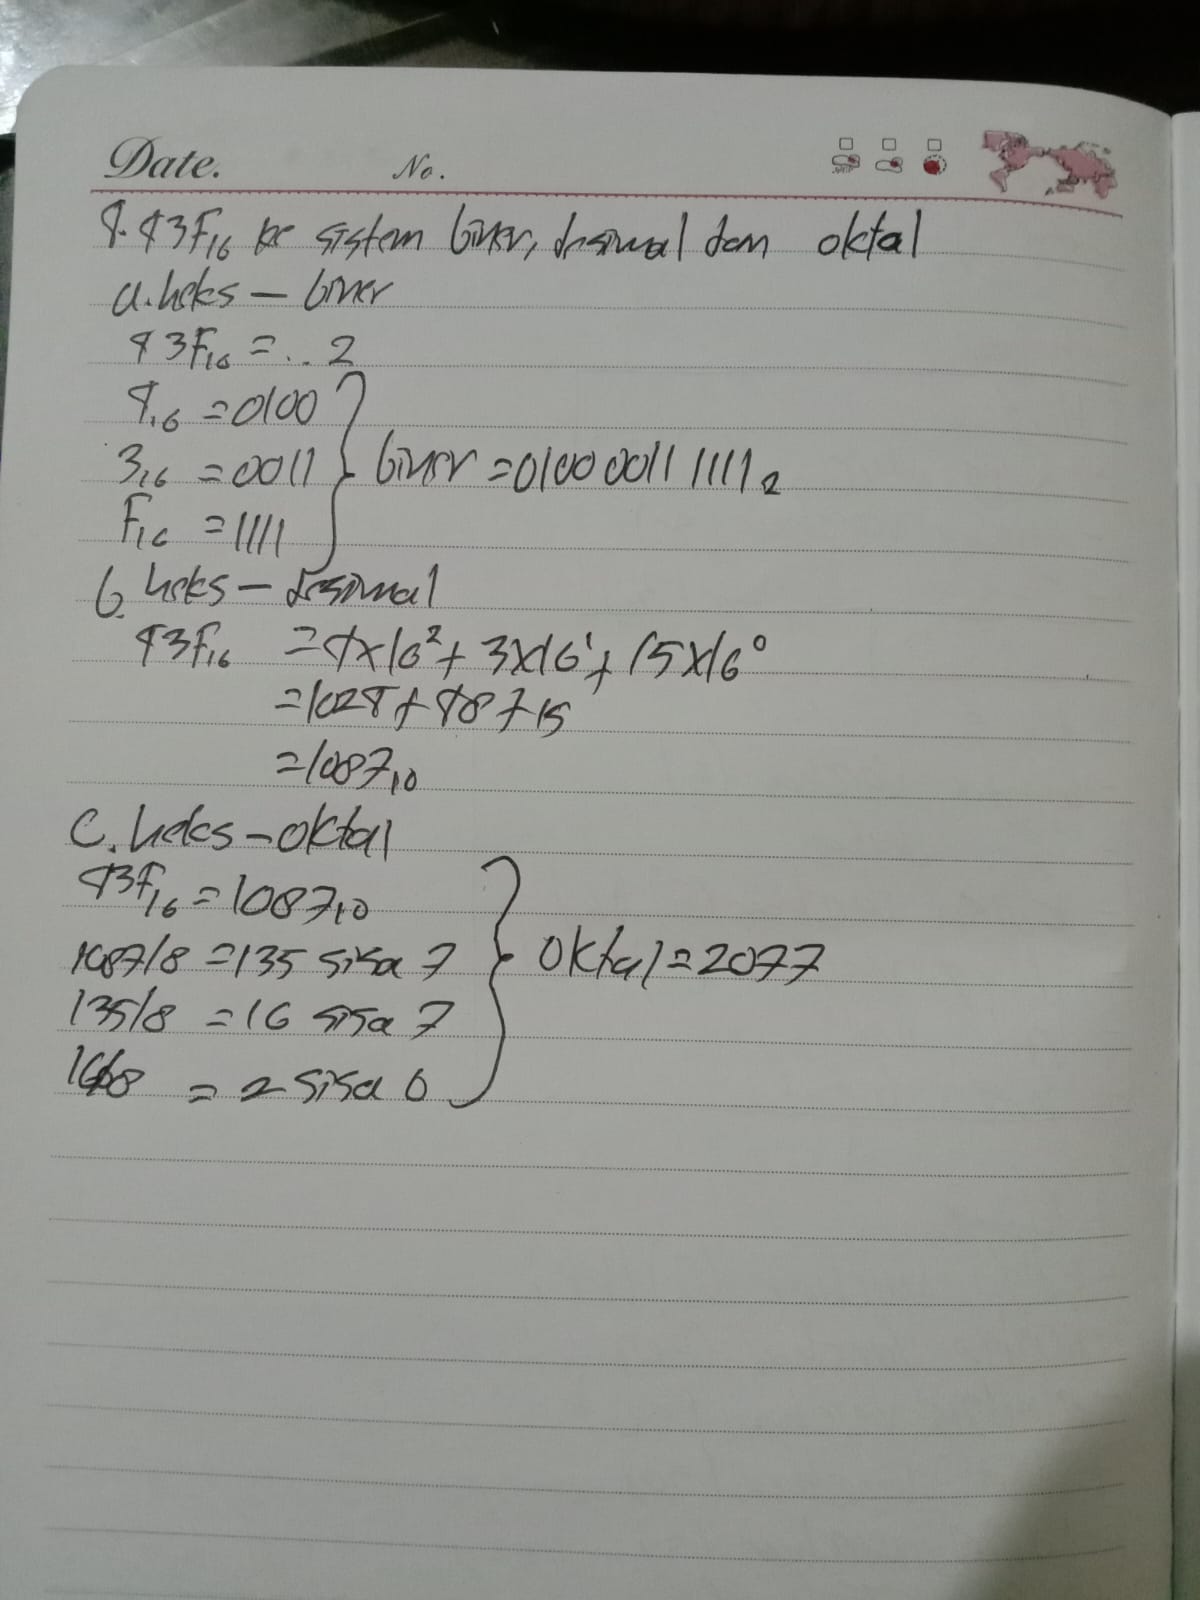 Date. No.
4. 43F₁₆ ke sistem biner, desimal dan oktal
a. heks – biner
43F₁₆ = .. 2
4₁₆ = 0100
3₁₆ = 0011 } biner = 0100 0011 1111₂
F₁₆ = 1111
b. heks – desimal
43F₁₆ = 4x16² + 3x16¹ + 15x16⁰
= 1024 + 48 + 15
= 1087₁₀
c. heks – oktal
43F₁₆ = 1087₁₀
1087/8 = 135 sisa 7 } oktal = 2077
135/8 = 16 sisa 7
16/8 = 2 sisa 0